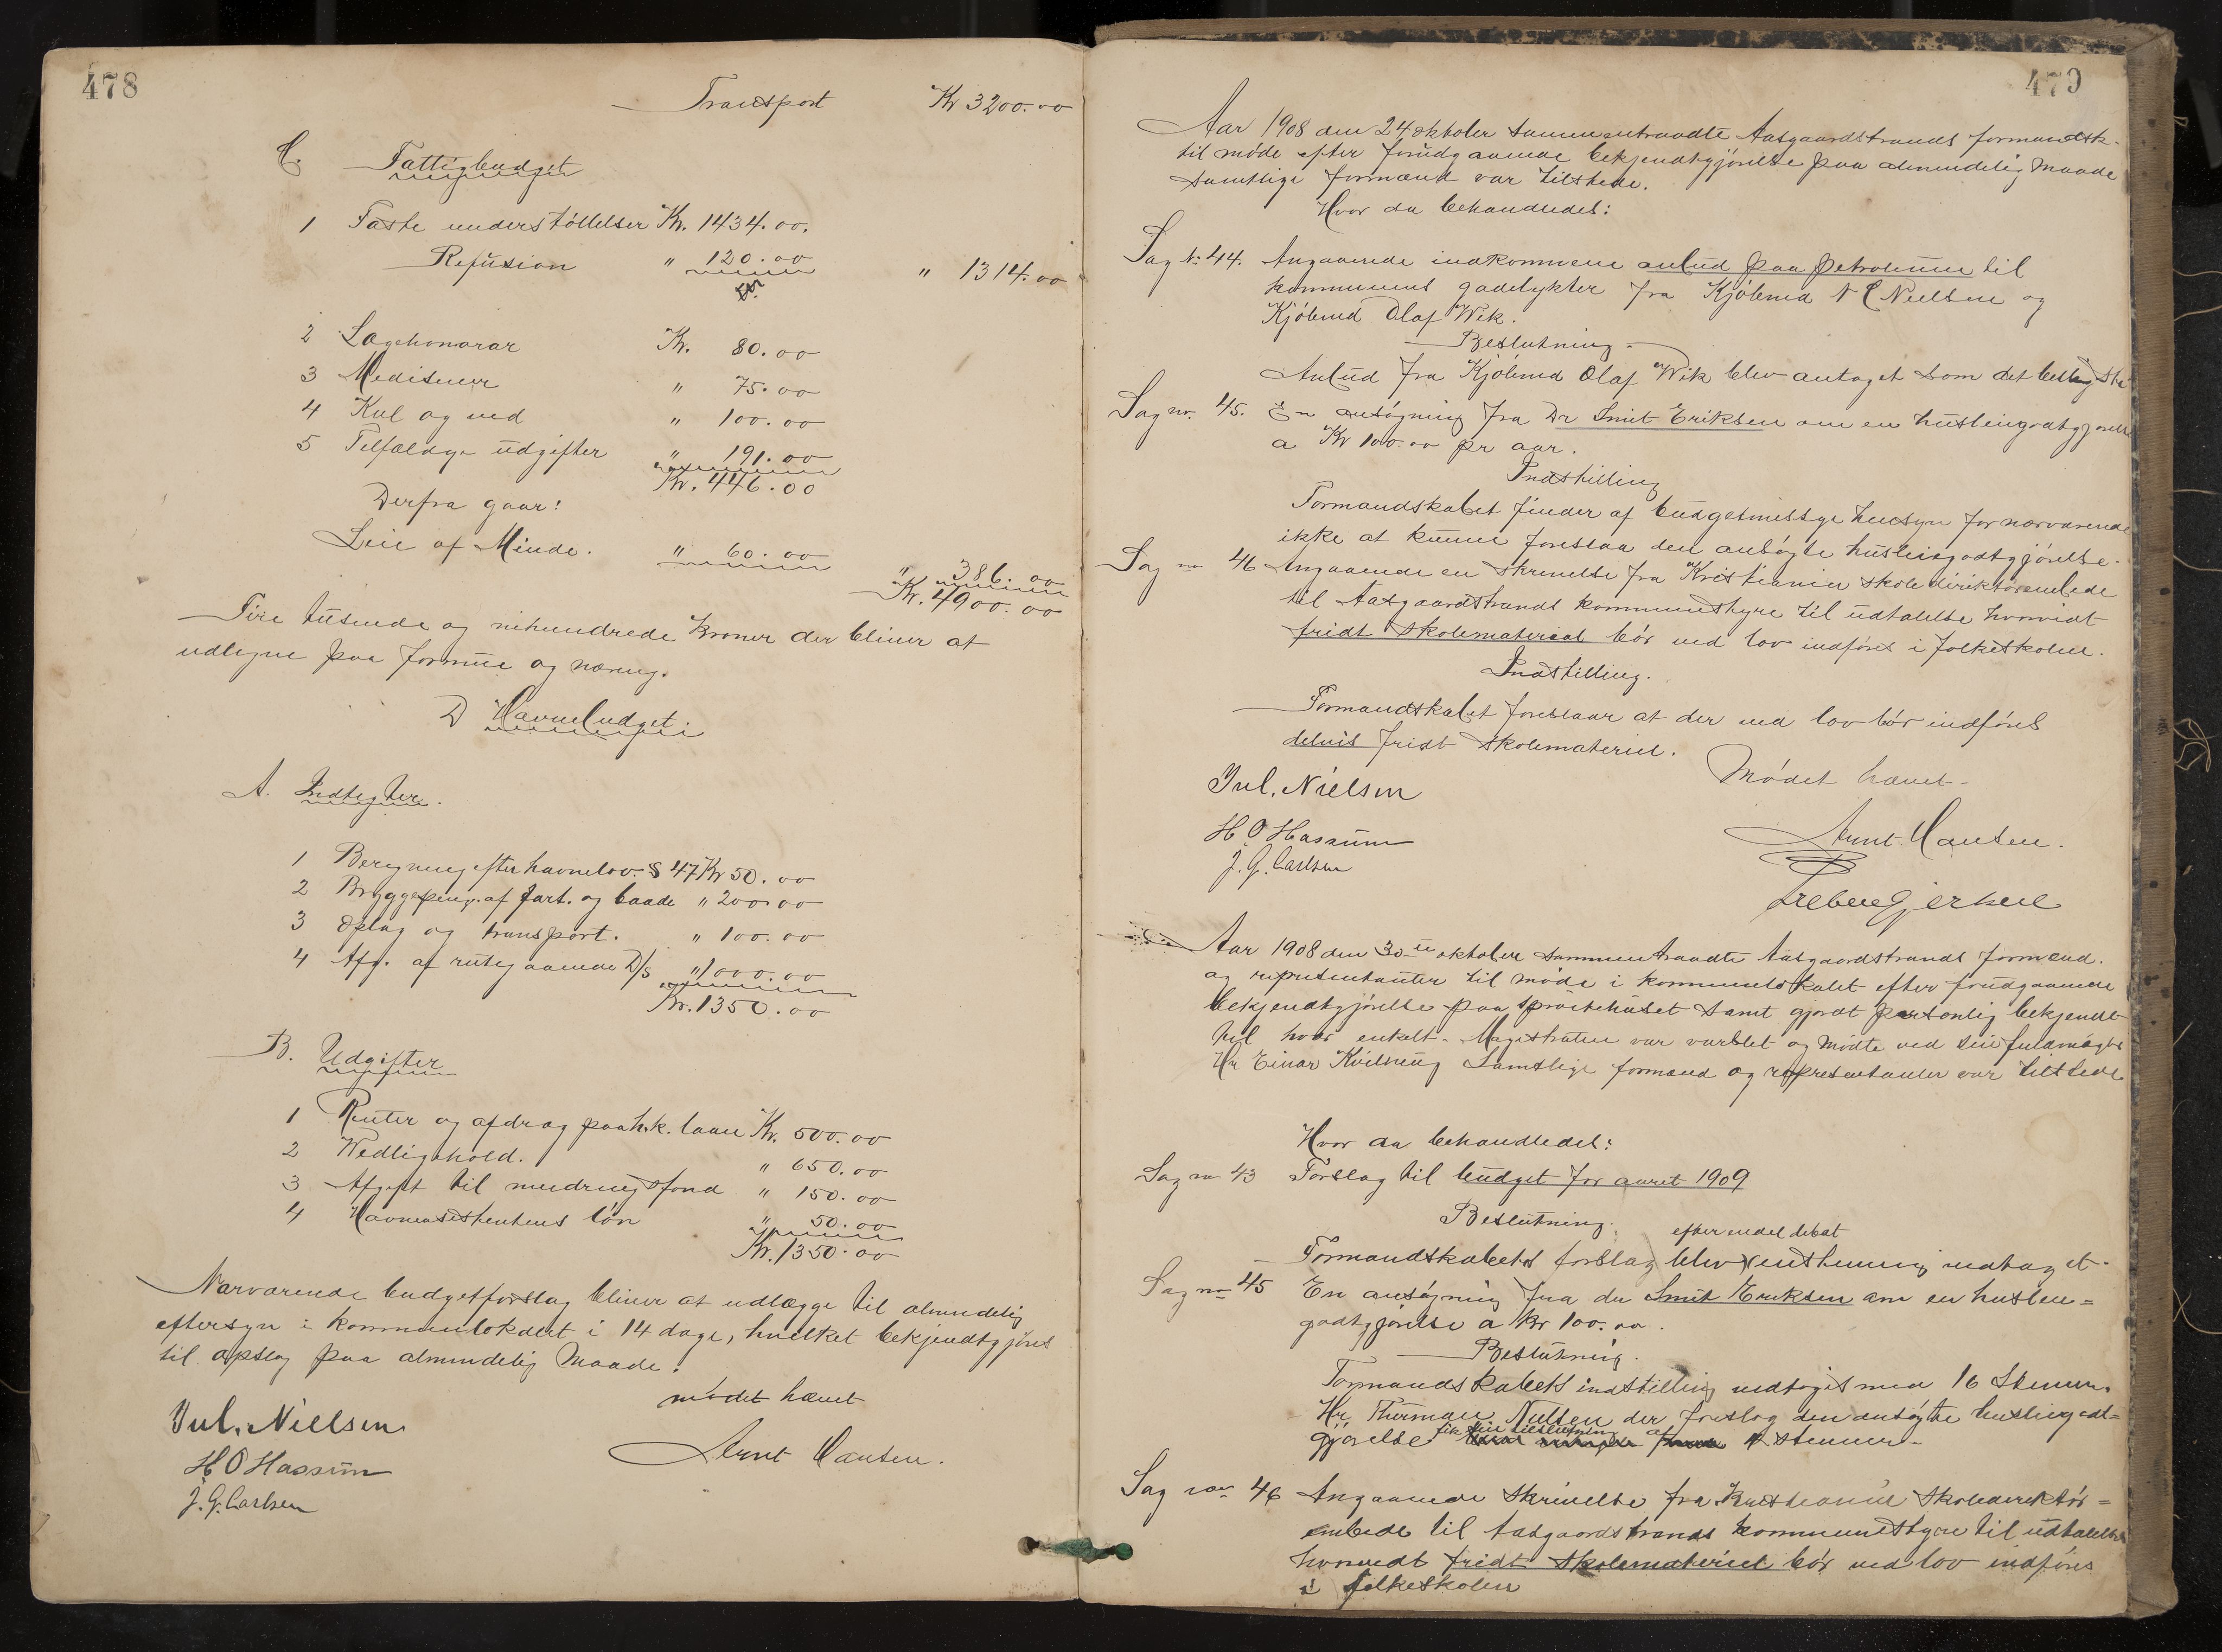 478
Transport Kr 3200.00
C. Fattigbudget
1 Faste understöttelser Kr. 1434.00.
Refusion " 120.00 " 1314.00
2 Lægehonorar Kr. 80.00
3 Medisiner " 75.00
4 Kul og ved " 100.00
5 Tilfældge udgifter " 191.00
Kr. 446.00
Derfra gaar:
Leie af Minde. " 60.00 " 386.00
Kr. 4900.00
Fire tusende og nihundrede kroner der bliver at
udligne paa formue og næring.
D Havnebudget:
A. Indtegter.
1 Beregning efter havnelov. § 47 Kr 50.00
2 Bryggepeng. af fart. og baade " 200.00
3 Oplag og transport. " 100.00
4 Afg. af rutegaaende D/S " 1000.00
Kr. 1350.00
B. Udgifter
1 Renter og afdrag paa h.k. laan Kr. 500.00
2 Vedligehold. " 650.00
3 Afgift til mudringsfond " 150.00
4 Havneasistentens lön " 50.00
Kr. 1350.00
Nærværende budgetforslag bliver at udlægge til almindelig
eftersyn i kommunelokalet i 14 dage, hvilket bekjendtgjöres
til opslag paa almindelig Maade.
mödet hævet
Jul. Nielsen
Arnt Hansen.
H O Hassum
J. G. Carlsen
479
Aar 1908 den 24 oktober sammentraadte Aasgaardstrands formandsk.
til möde efter forudgaaende bekjendtgjörelse paa almindelig Maade
samtlige formænd var tilstede.
Hvor da behandledes:
Sag N: 44. Angaaende indkommene anbud paa petroleum til
kommunens gadelykter fra Kjöbmd N C Nielsen og
Kjöbmd Olaf Wik.
Beslutning
Anbud fra Kjöbmd Olaf Wik blev antaget som det billigste
Sag nr. 45. En ansögning fra Dr Smit Eriksen om en husleiegodtgjörelse
a Kr 100.00 pr aar.
Indstilling
Formandskabet finder af budgetmessige hensyn for nærværende
ikke at kunne foreslaa den ansögte husleiegodtgjörelse.
Sag nr 46 Angaaende en skrivelse fra Kristiania skoledirektörembede
til Aasgaardstrands kommunestyre til udtalelse hvorvidt
fridt skolemateriel bör ved lov indföres i folkeskolen.
Indstilling.
Formandskabet foreslaar at der ved lov bör indföres
delvis fridt skolemateriel.
Mödet hævet
Jul. Nielsen
H O Hassum
Arnt Hansen.
J. G. Carlsen
Aar 1908 den 30 oktober sammentraadte Aasgaardstrands formænd.
og representanter til möde i kommunelokalet efter forudgaaende
bekjendtgjörelse paa spröitehuset samt gjordt personlig bekjendt
hver enkelt. Magistraten var varslet og mödte ved sin fuldmægtig
Hr Einar Samtlige formænd og representanter var tilstede
Hvor da behandledes:
Sag nr 43 Forslag til budget for aaret 1909
Beslutning.
efter endel debat
Formandskabets forslag blev enstemmig vedtaget.
Sag nr 45 En ansögning fra dr Smit Eriksen om en husleie=
godtgjörelse a kr 100.00.
Beslutning.
Formandskabets indstilling vedtoges med 16 stemmer.
Hr. Nielsen der foreslog den ansögte husleiegodt=
fik sin tilslutning af
gjörelse stemmer
Sag nr 46 Angaaende skrivelse fra Kristiania skoledirektör=
embede til Aasgaardstrands kommunestyre til udtalelse
hvorvidt fridt skolemateriel bör ved lov indföres
i folkeskolen